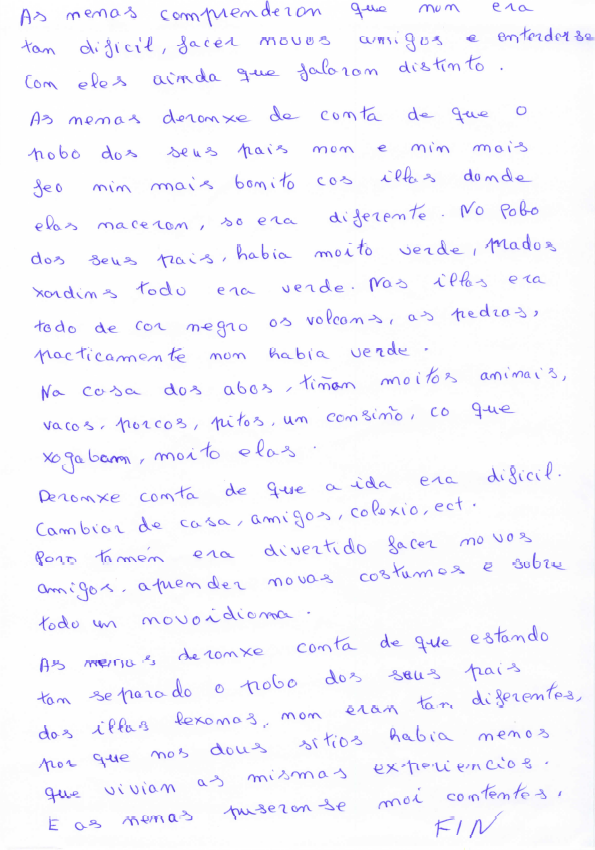 As nenas comprenderon que non era
tan dificil, facer novos amigos e enterderse
Com eles ainda que falaron distinto.
As nenas deronxe de conta de que o
pobo dos seus pais non e nin mais
feo nin mais bonito cos illas donde
elas naceron, so era diferente. No Pobo
dos seus pais, habia moito verde, prados
xardins todo era verde. Nas illas era
todo de cor negro os volcans, as pedras,
practicamente non habia verde.
Na casa dos abos, tiñan moitos animais,
vacos, porcos, pitos, un consiño, co que
xogabam, moito elas.
Deronxe conta de que a ida era dificil.
Cambior de casa, amigos, colexio, ect.
Poro tamén era divertido facer novos
amigos. aprender novas costumes e sobre
todo un novo idioma.
As nenas deronxe conta de que estando
tan separado o pobo dos seus pais
dos illas lexonas, non eran tan diferentes,
por que nos dous sitios habia nenos
que vivian as mismas experiencios.
E as nenas puseronse moi contentes.
FIN